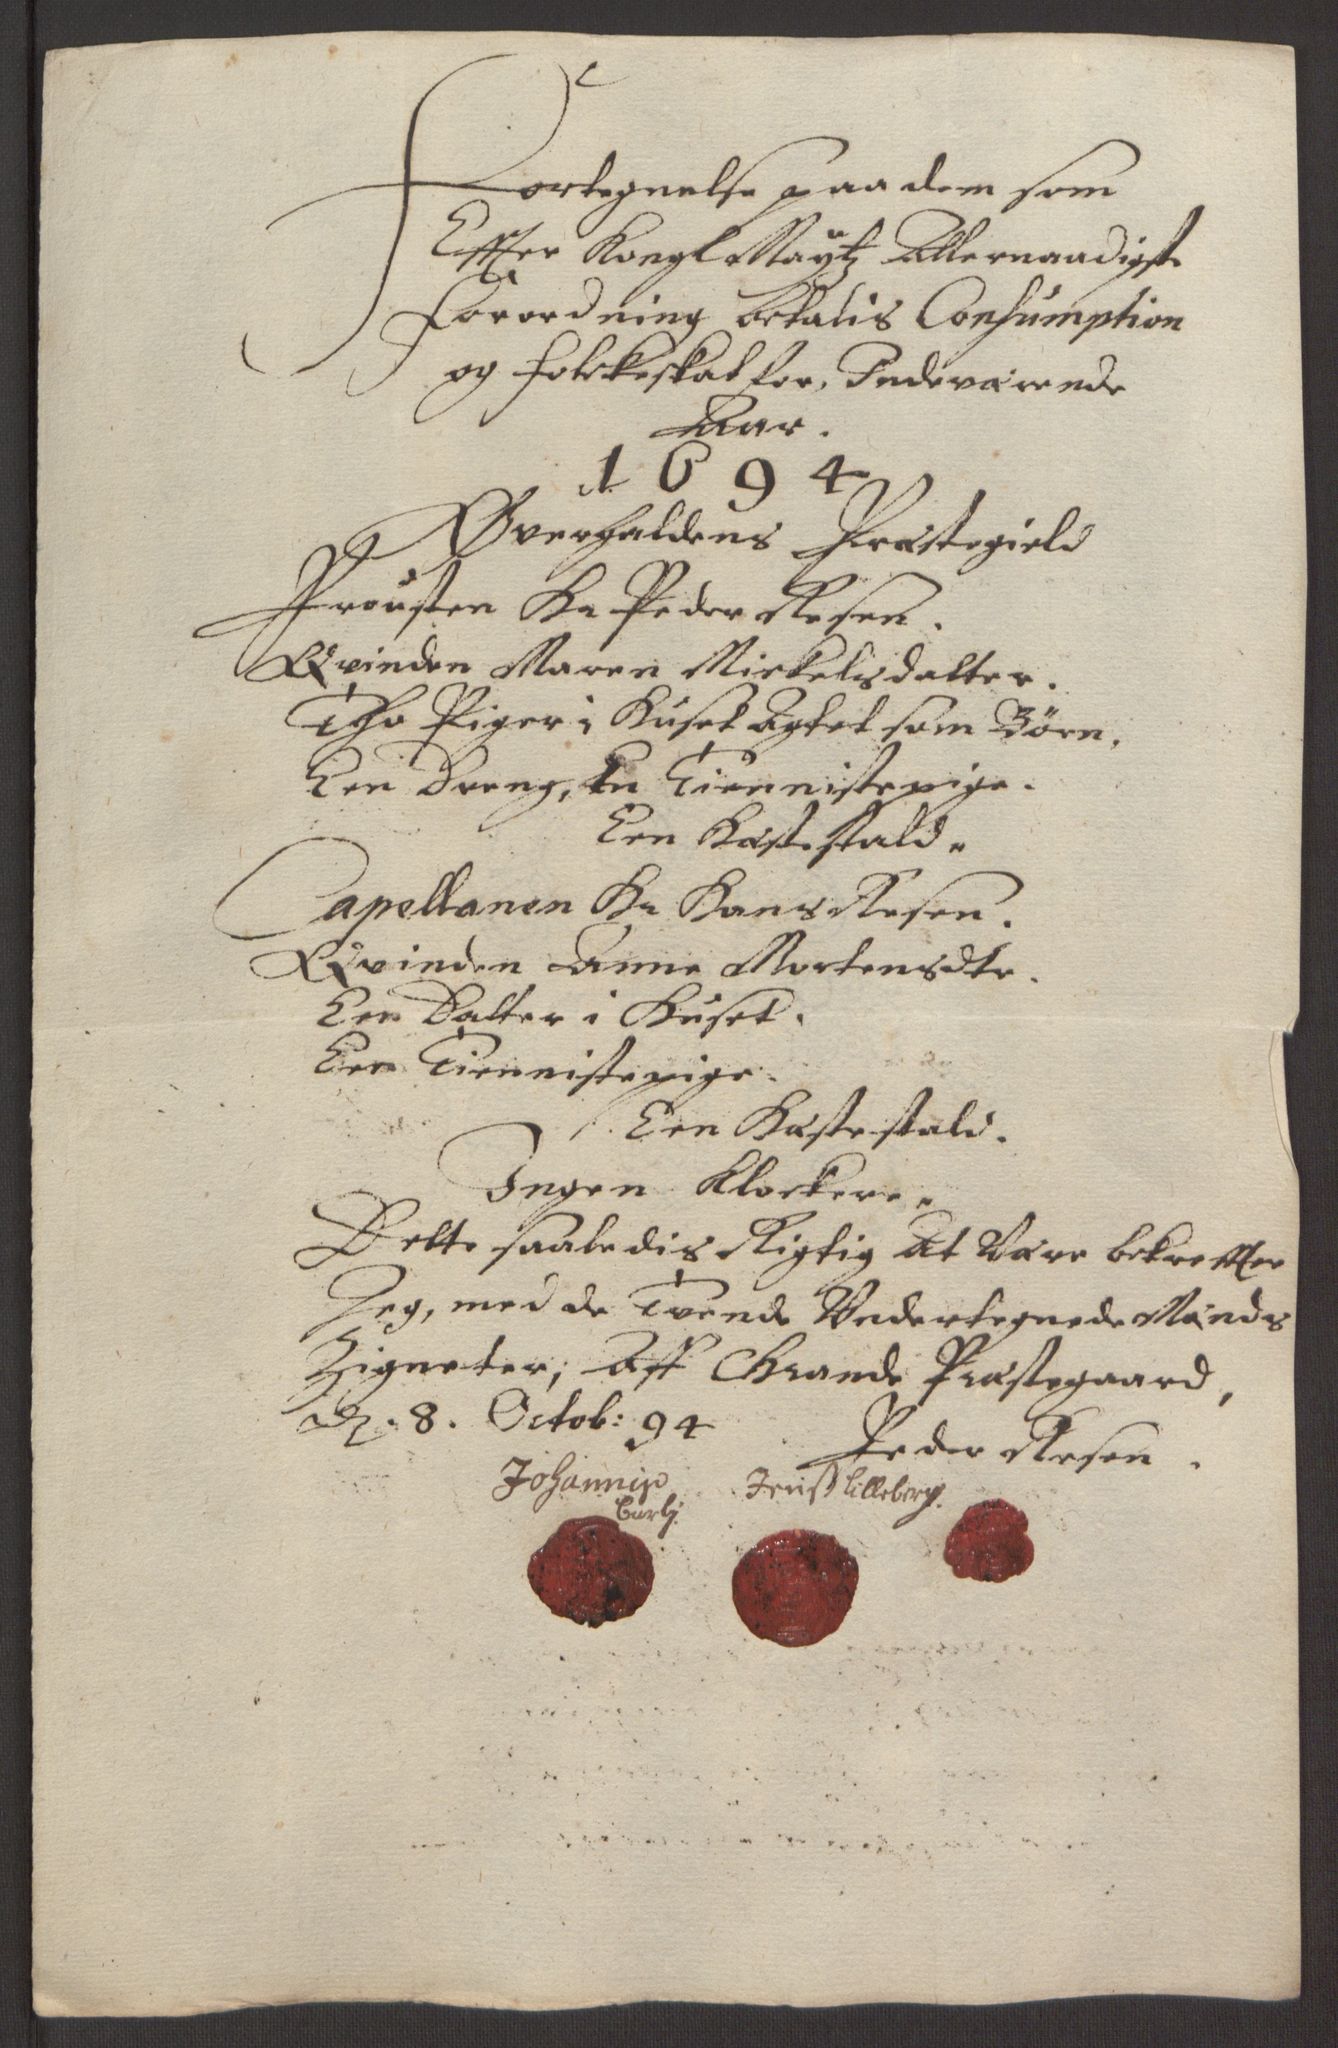 Fortegnelse paa dem som
Effter Kongl Maÿtz Allernaadigste
Forordning betalis Consumption
og folckeskat for Indeværende
Aar.
1694
Ofverhaldens Præstegield
Proŭsten Hr Peder Resen.
Qvinden Maren Mickelsdatter.
Tho Piger i Hŭset Agtet som Börn.
Een Dreng, En Tiennistepige.
Een Hæstestald.
Capellanen Hr Hans Resen.
Qvinden Anne Mortensdtr.
Een Datter i Hŭset.
Een Tiennistepige.
Een Hæstestald.
Ingen Klockere.
Dette saaledis Rigtig At Være bekreffter
Jeg, med de Tvende Undertegnede Mænds
Zigneter; Aff Grande Præstegaard,
d. 8. Octob: 94
Peder Resen.
Johannis Jenß lilleberg.